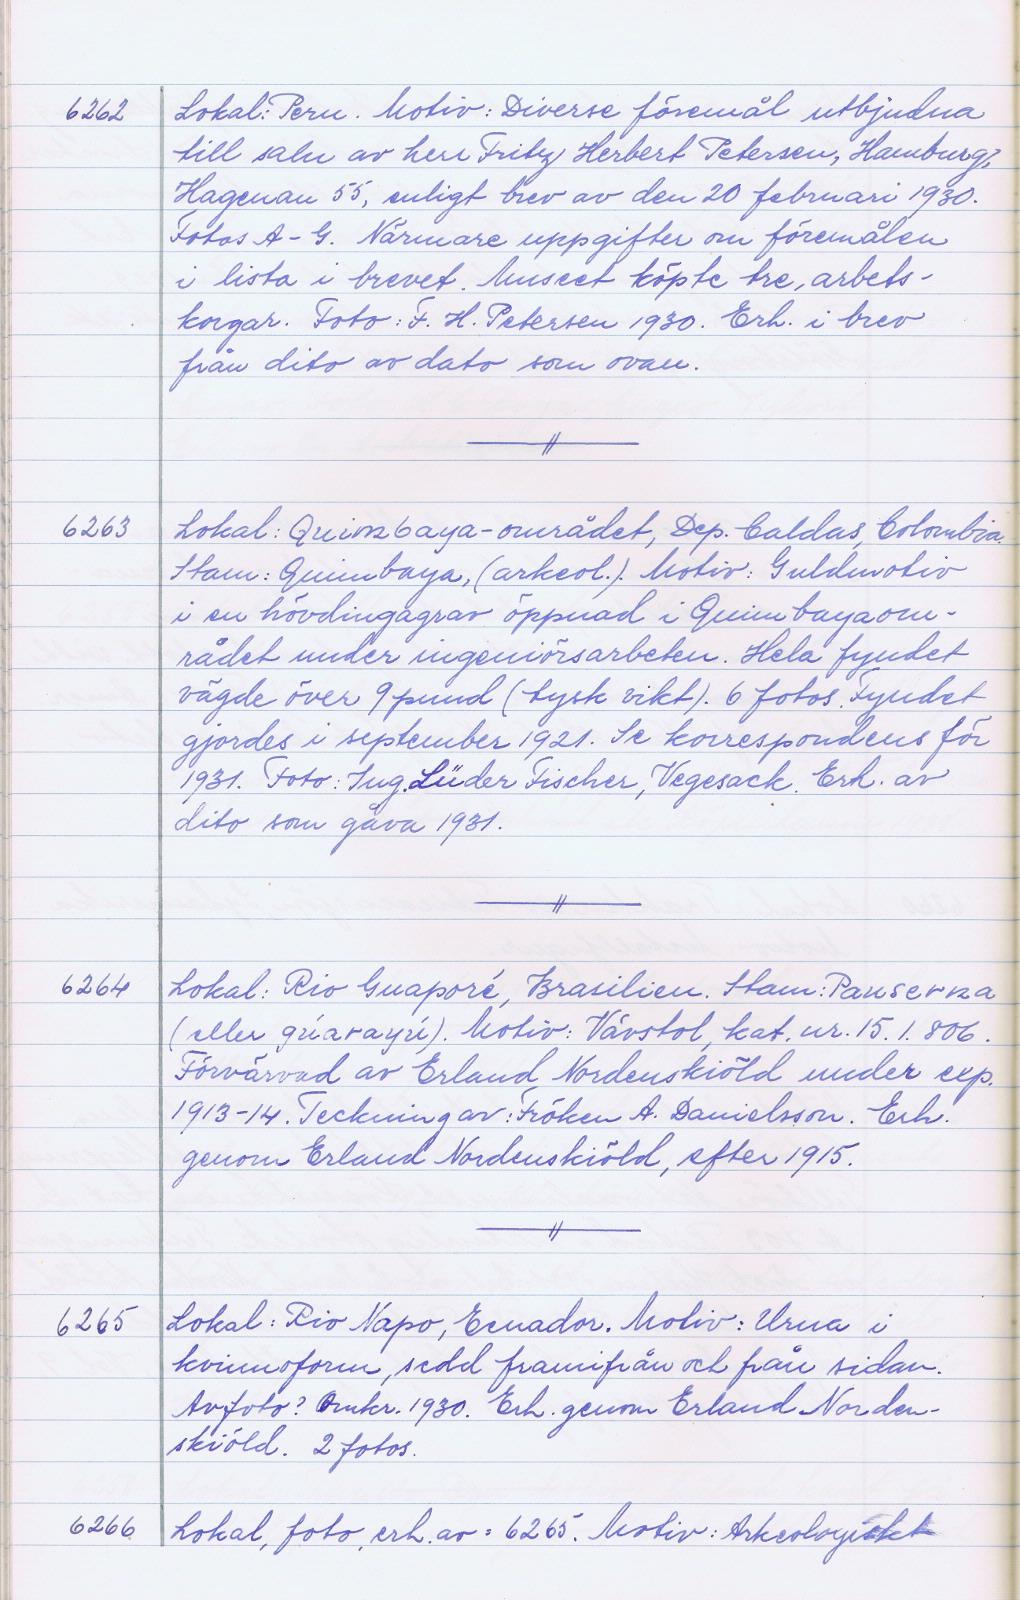 6262 Lokal: Peru. Motiv: Diverse föremål utbjudna
till salu av herr Fritz Herbert Petersen, Hamburg,
Hagenau 55, enligt brev av den 20 februari 1930.
Fotos A-G. Närmare uppgifter om föremålen
i lista i brevet. Museet köpte tre, arbets-
korgar. Foto: F. H. Petersen 1930. Erh. i brev
från dito av dato som ovan.
6263 Lokal: Quimbaya-området, Dep. Caldas, Colombia.
Stam: Quimbaya, (arkeol.). Motiv: Guldmotiv
i en hövdingagrav öppnad i Quimbayaom-
rådet under ingeniörsarbeten. Hela fyndet
vägde över 9 pund (tysk vikt). 6 fotos. Fyndet
gjordes i september 1921. Se korrespondens för
1931. Foto: Ing. Lüder Fischer, Vegesack. Erh. av
dito som gåva 1931.
6264 Lokal: Rio Guaporé, Brasilien. Stam: Pauserna
(eller guarayú). Motiv: Vävstol, kat. nr. 15.1.806.
Förvärvad av Erland Nordenskiöld under exp.
1913-14. Teckning av: Fröken A. Danielsson. Erh.
genom Erland Nordenskiöld, efter 1915.
6265 Lokal: Rio Napo, Ecuador. Motiv: Urna i
kvinnoform, sedd framifrån och från sidan.
Avfoto? Omkr. 1930. Erh. genom Erland Norden-
skiöld. 2 fotos.
6266 Lokal, foto, erh. av = 6265. Motiv: Arkeologiskt